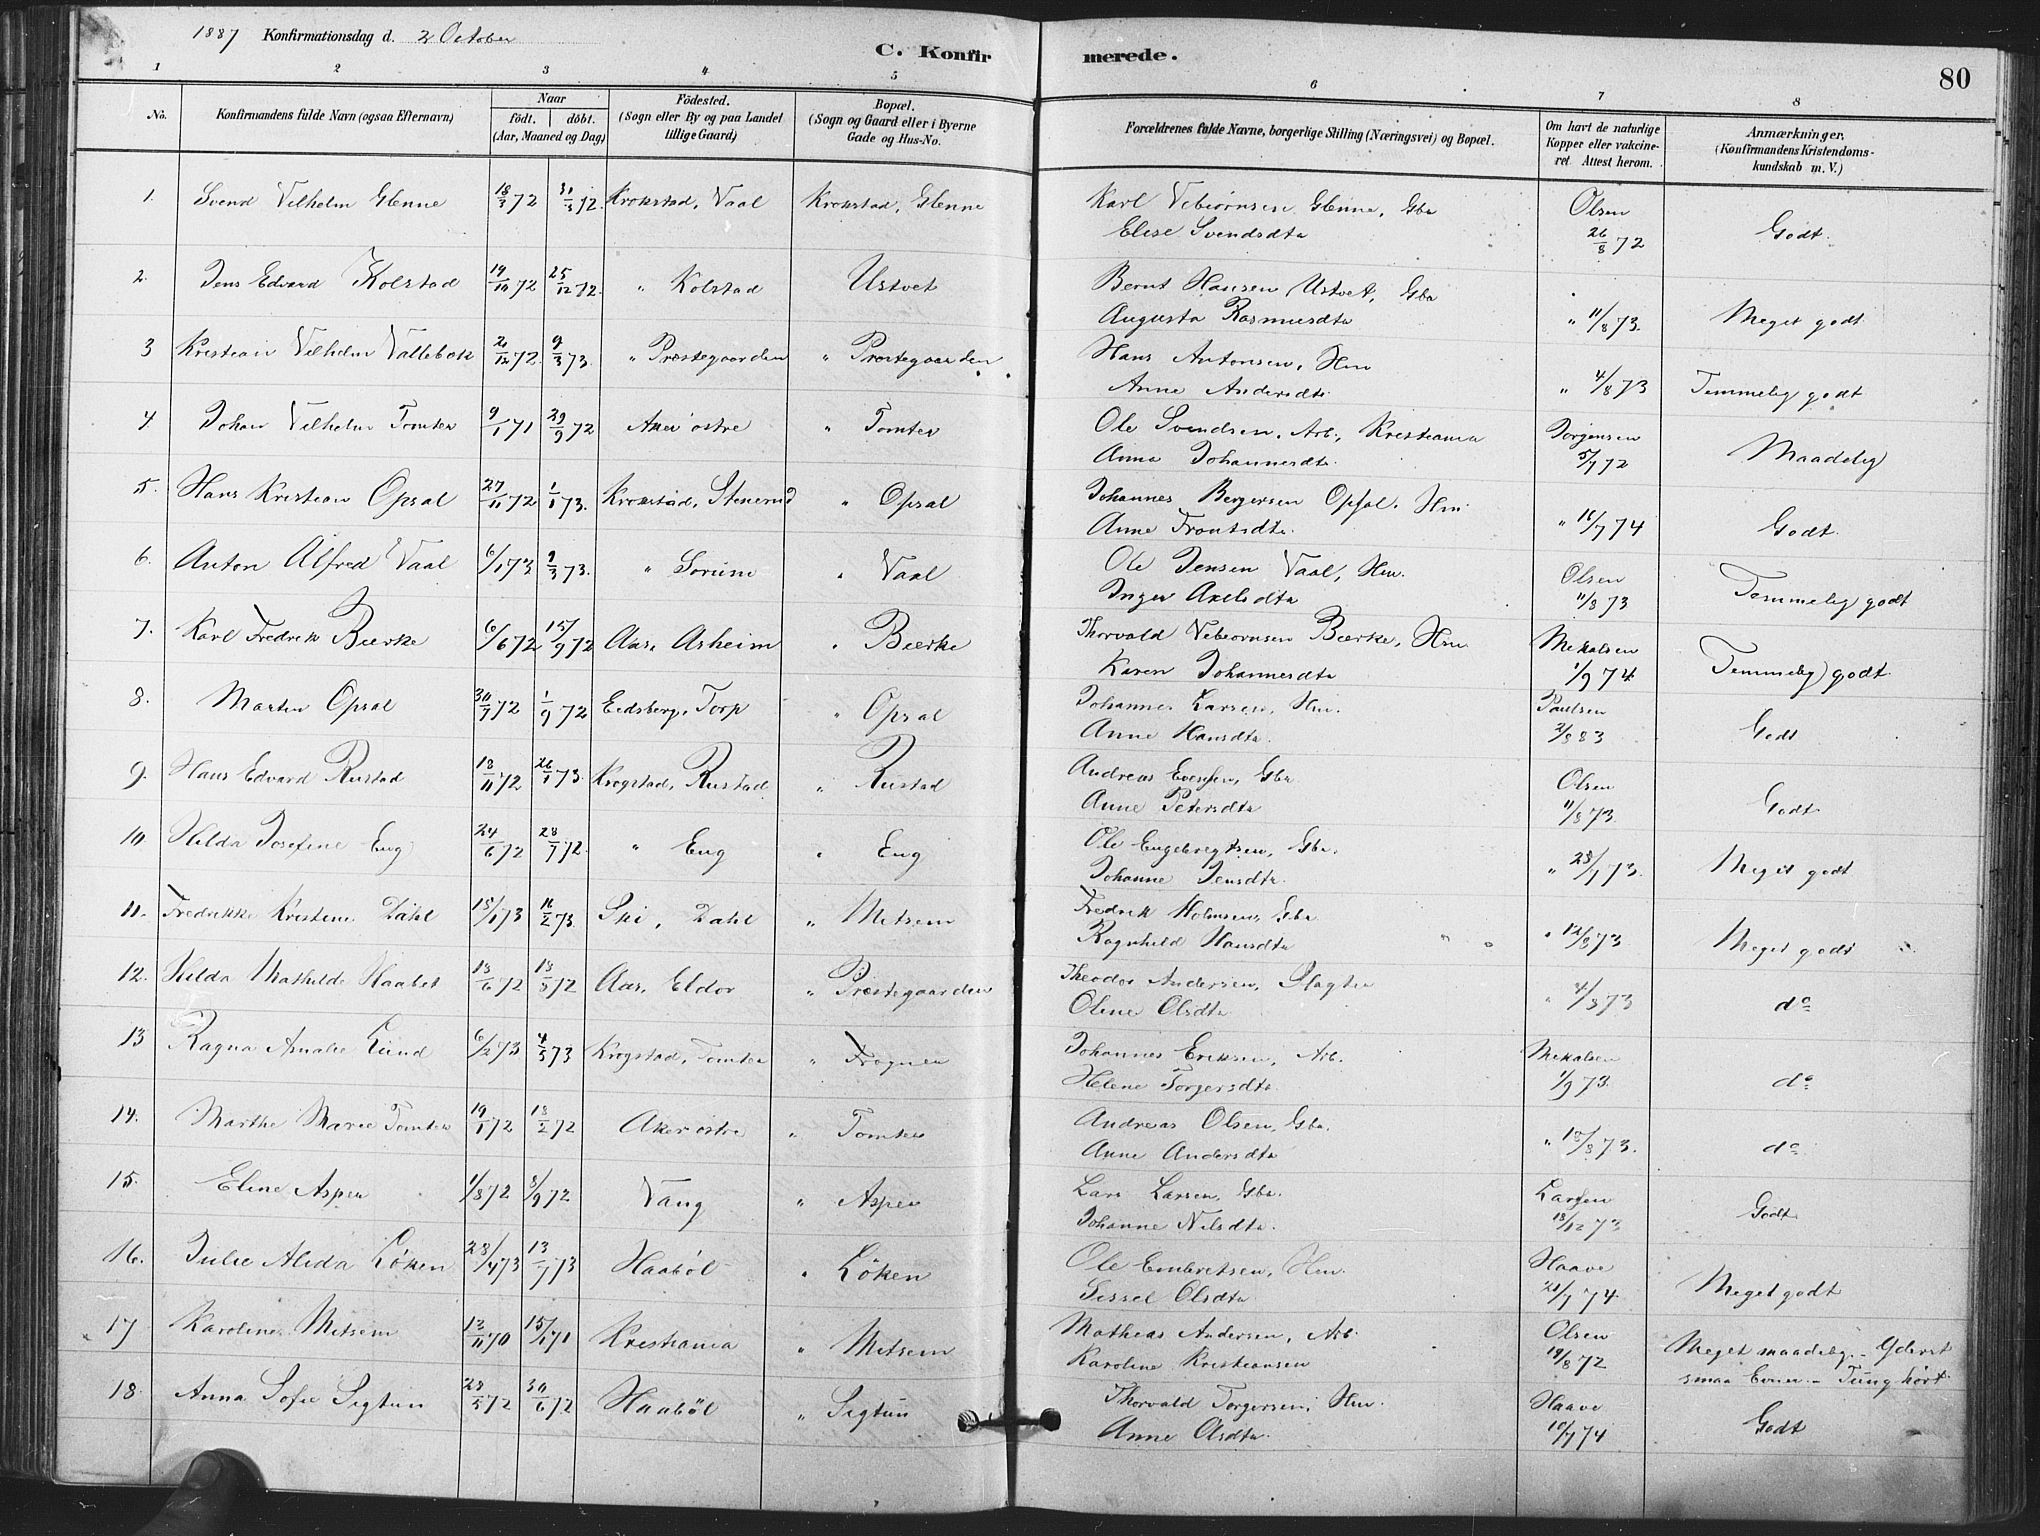 1887 Konfirmationsdag d. 2 October
C. Konfirmerede. 80
1 2 3 4 5 6 7 8
No. Konfirmandens fulde Navn (ogsaa Efternavn) Naar födt. döbt. (Aar, Maaned og Dag) Födested. (Sogn eller By og paa Landet tillige Gaard) Bopæl. (Sogn og Gaard eller i Byerne Gade og Hus-No. Forældrenes fulde Navne, borgerlige Stilling (Næringsvei) og Bopæl. Om havt de naturlige Kopper eller vakcineret. Attest herom. Anmærkninger. (Konfirmandens Kristendomskundskab m. V.)
1. Svend Vilhelm Glenne 18/3 72 31/3 72. Krokstad, Vaal Krokstad, Glenne Karl Vebiørnsen Glenne, Gbr Olsen
Elise Svendsdtr 26/8 72 Godt.
2. Jens Edvard Kolstad 19/10 72 25/12 72. " Kolstad Ustvet Bernt Hansen Ustvet, Gbr
Augusta Rasmusdtr " 11/8 73. Meget godt
3 Kristian Vilhelm Vallebæk 2/12 72 9/3 73. " Prostegaarden " Prostegaarden Hans Antonsen, Hm
Anne Andersdtr " 4/8 73 Temmelig godt
4 Johan Vilhelm Tomter 9/1 71 29/9 72 Aker østre " Tomter Ole Svendsen, Arb., Kristiania Jørgensen
Anna Johannesdtr 5/7 72 Maadelig
5. Hans Kristian Opsal 27/11 72 1/1 73. Krokstad, Stenerud " Opsal Johannes Bergersen Opsal. Hm.
Anne Frantsdtr. " 16/7 74 Godt.
6. Anton Alfred Vaal 6/1 73 9/3 73. " Sorum " Vaal Ole Jensen Vaal, Hm. Olsen
Inger Axelsdtr 11/8 73 Temmelig godt
7. Karl Fredrik Bierke 6/6 72 15/9 72 Aas, Asheim " Bierke Thorvald Vebiørnsen Bierke, Hm Mekalsen
Karen Johannesdtr 1/9 74. Temmelig godt.
8. Martin Opsal 30/7 72 1/9 72 Eidsberg, Torp " Opsal Johannes Larsen, Hm. Paulsen
Anne Hansdtr. 2/8 83 Godt
9. Hans Edvard Rustad 18/11 72 26/1 73. Krogstad, Rustad " Rustad Andreas Evensen, Gbr. Olsen
Anne Petersdtr 11/8 73. Godt
10. Hilda Josefine Eng 24/6 72 28/7 72. " Eng " Eng Ole Engebregtsen, Gbr.
Johanne Jensdtr. " 28/7 73. Meget godt
11. Fredrikke Kristine Dahl 15/1 73 16/2 73. Ski, Dahl " Mitsem Fredrik Holmsen, Gbr
Ragnhild Hansdtr " 12/8 73 Meget godt
12. Hilda Mathilde Haabet 13/6 72 13/5 72 Aas, Eldor " Prostegaarden Theodor Andersen, Slagter
Oline Olsdtr " 4/8 73 do
13 Ragna Amalie Lund 6/2 73 4/5 73 Krogstad, Tomter " Frogner Johannes Eriksen, Arb. Mekalsen
Helene Torgersdtr 1/9 73. do
14. Marthe Marie Tomter 19/1 72 18/2 72 Aker østre " Tomter Andreas Olsen, Gbr.
Anne Andersdtr " 18/8 73. do
15. Eline Aspen 1/8 72 8/9 72 Vang " Aspen Lars Larsen, Gbr. Larsen
Johanne Nilsdtr. 18/12 73 Godt
16. Julie Alida Løken 28/4 73 13/7 73 Haabøl " Løken Ole Embretsen, Hm. Haave
Sissel Olsdtr 21/7 74. Meget godt
17 Karoline Mitsem 13/11 70 15/1 71 Kristiania " Mitsem Mathias Andersen, Arb. Olsen
Karoline Kristiansen 19/8 72 Meget maadelig. - Yderst smaa Evner. - Tunghørt.
18. Anna Sofie Sigtun 23/5 72 30/6 72 Haabøl " Sigtun Thorvald Torgersen, Hm. Haave
Anne Olsdtr. 10/7 74 Godt